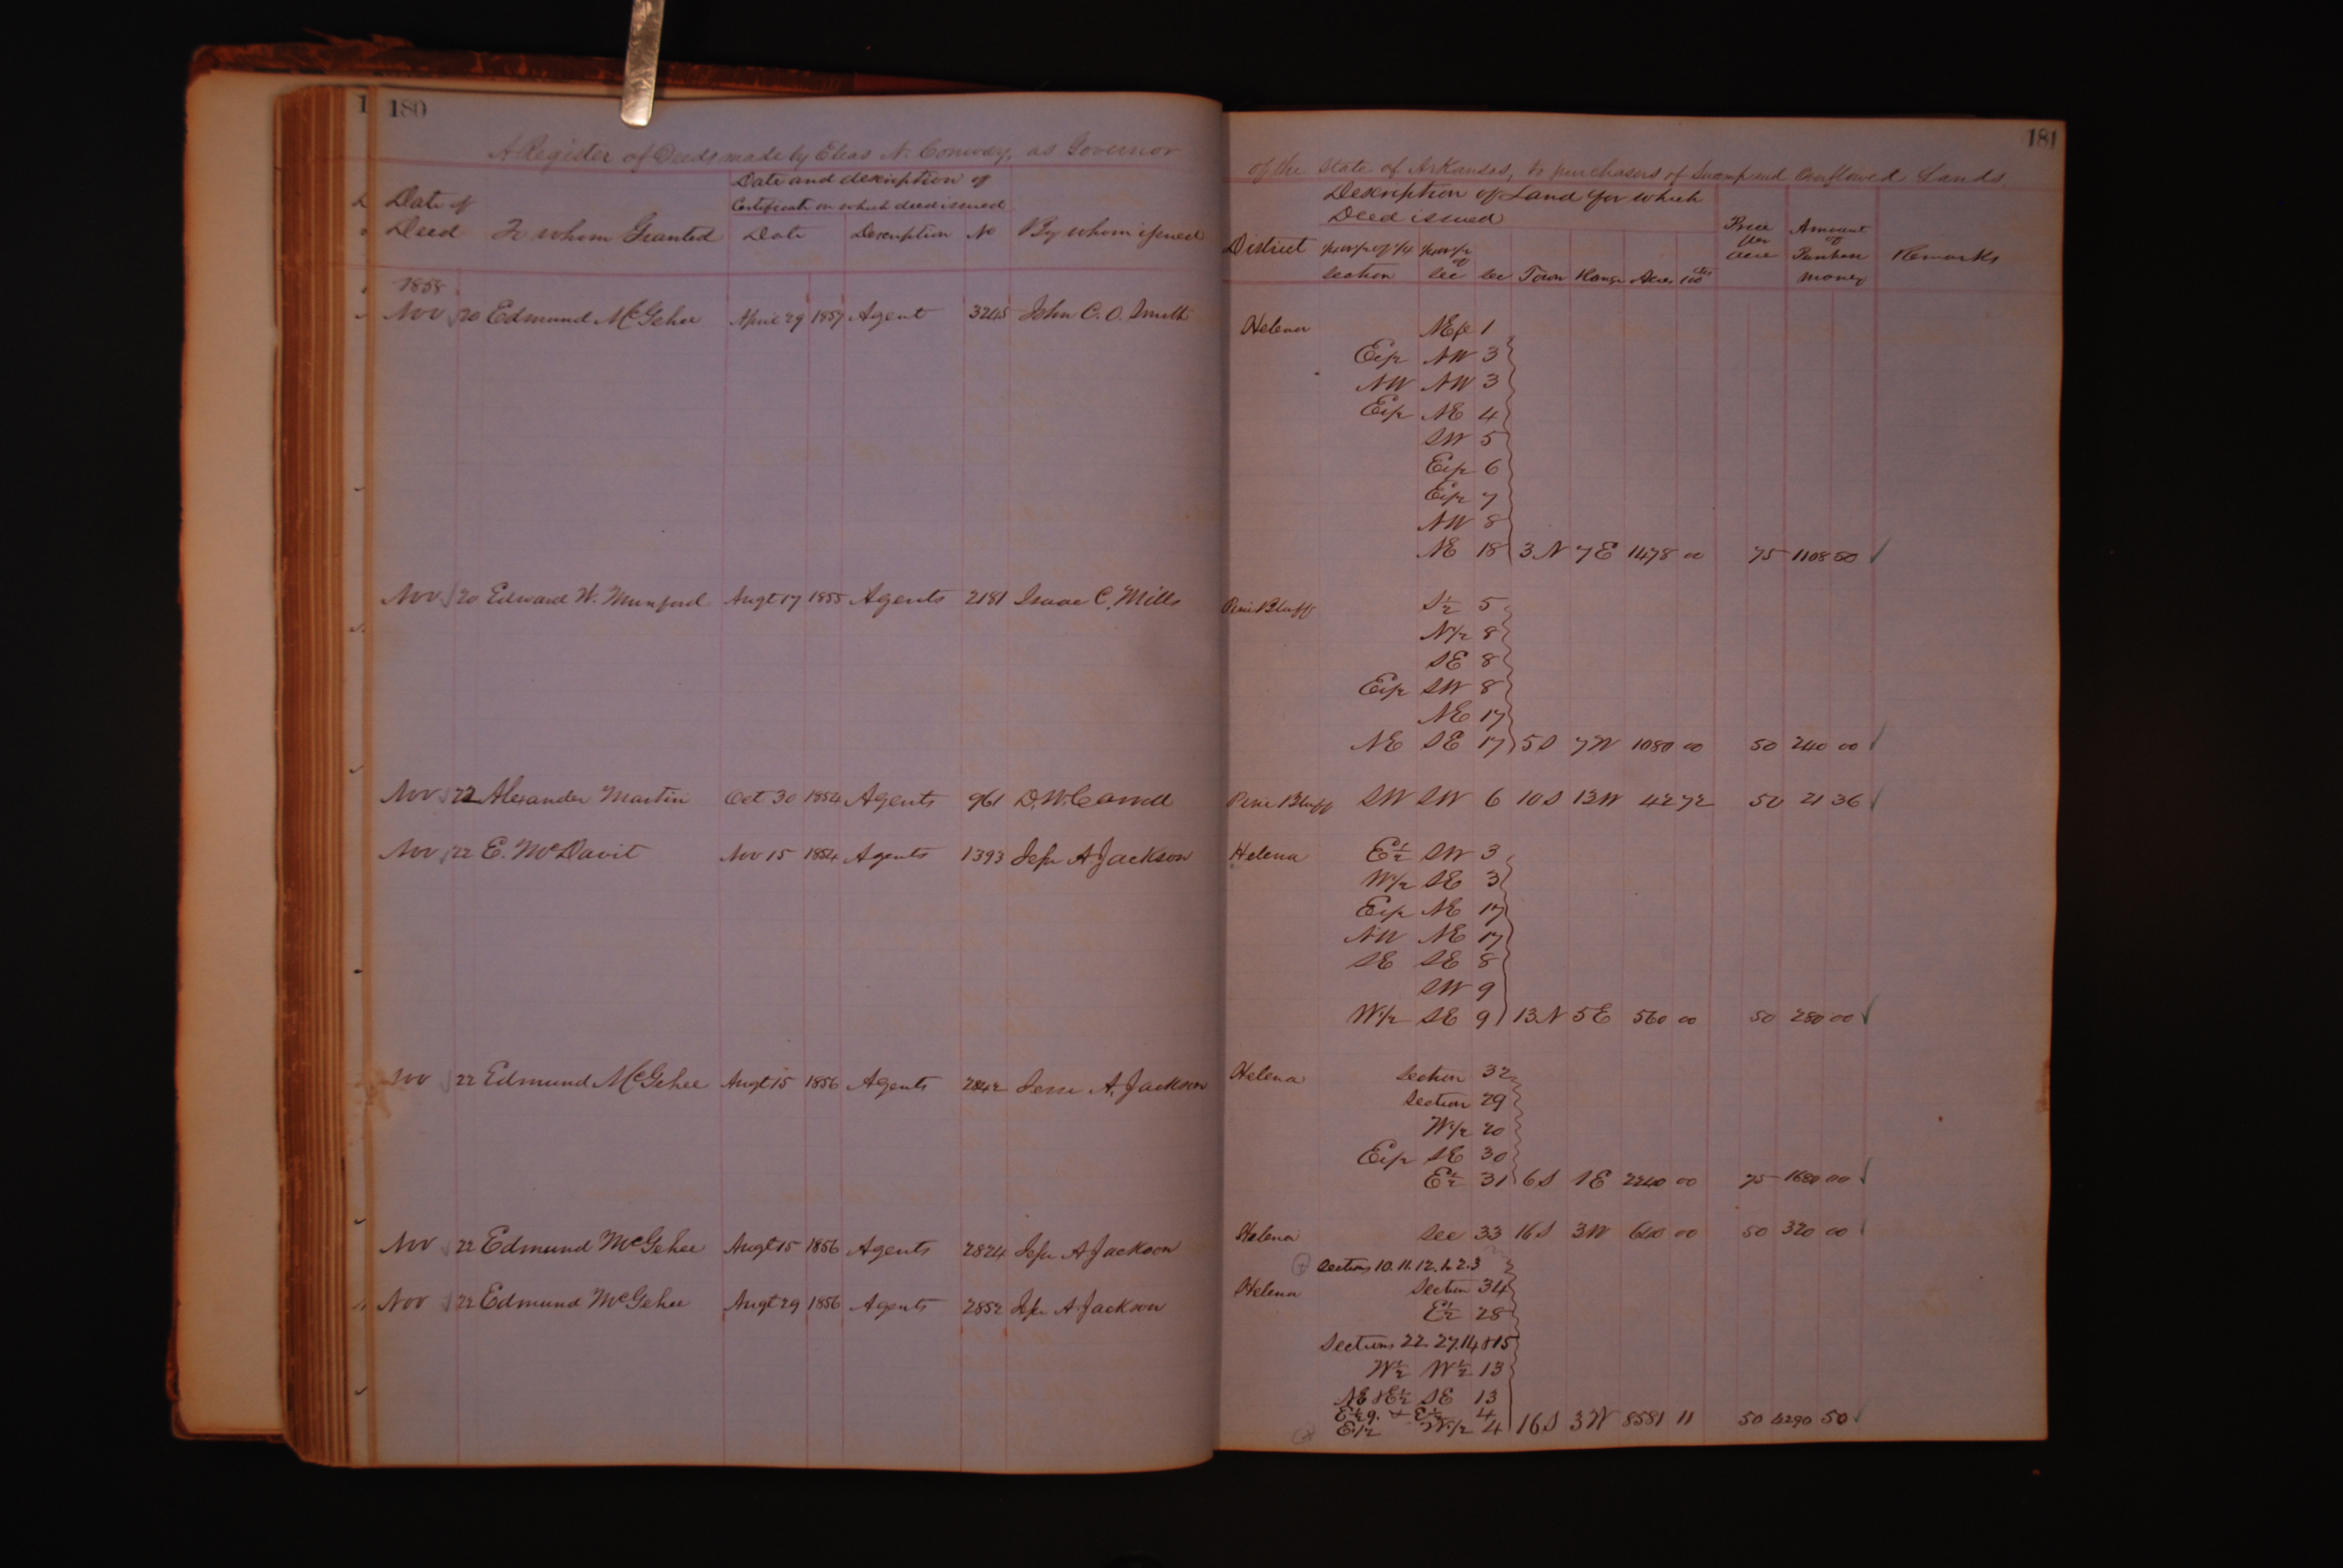 180
A Register of Deeds made by Elias N. Conway, as Governor
Date of
Deed
To whom Granted
Date and description of
Certificate on which deed issued
Date Description No
By whom issued
1858
Nov 20 Edmund McGehee April 29 1857 Agent 3245 John C. O. Smith
Nov 20 Edward W. Munford Augt 17 1855 Agents 2181 Isaac C. Mills
Nov 22 Alexander Martin Oct 30 1854 Agents 961 D. W. Carroll
Nov 22 E. McDavit Nov 15 1854 Agents 1393 Jesse A Jackson
Nov 22 Edmund McGehee Augt 15 1856 Agents 2842 Jesse A. Jackson
Nov 22 Edmund McGehee Augt 15 1856 Agents 2824 Jesse A Jackson
Nov 22 Edmund McGehee Augt 29 1856 Agents 2852 Jesse A Jackson
181
of the State of Arkansas, to purchasers of Swamp and Overflowed Lands
Description of Land for which
Deed issued
District
section
sec sec Town Range Acres 100
Price
per
acre
Amount
of
Purchase
money
Remarks
Helena
1
NW 3
NW NW 3
NE 4
SW 5
6
7
NW 8
NE 18 3 N 7 E 1478 00 75 1108 50
Pine Bluff S½ 5
N½ 8
SE 8
SW 8
NE 17
NE SE 17 5 S 7 W 1080 00 50 240 00
Pine Bluff SW SW 6 10 S 13 W 42 72 50 21 36
Helena E½ SW 3
W½ SE 3
NE 17
NW NE 17
SE SE 8
SW 9
W½ SE 9 13 N 5 E 560 00 50 280 00
Helena Section 32
Section 29
W½ 20
SE 30
E½ 31 6 S 1 E 2240 00 75 1680 00
Helena Sec 33 16 S 3 W 640 00 50 320 00
Sections 10. 11. 12. 1. 2. 3
Helena Section 34
E½ 28
Sections 22. 27. 14 & 15
W½ W½ 13
NE & E½ SE 13
E½ 9. & E½ 4
E½ W½ 4 16 S 3 W 8581 11 50 4290 50